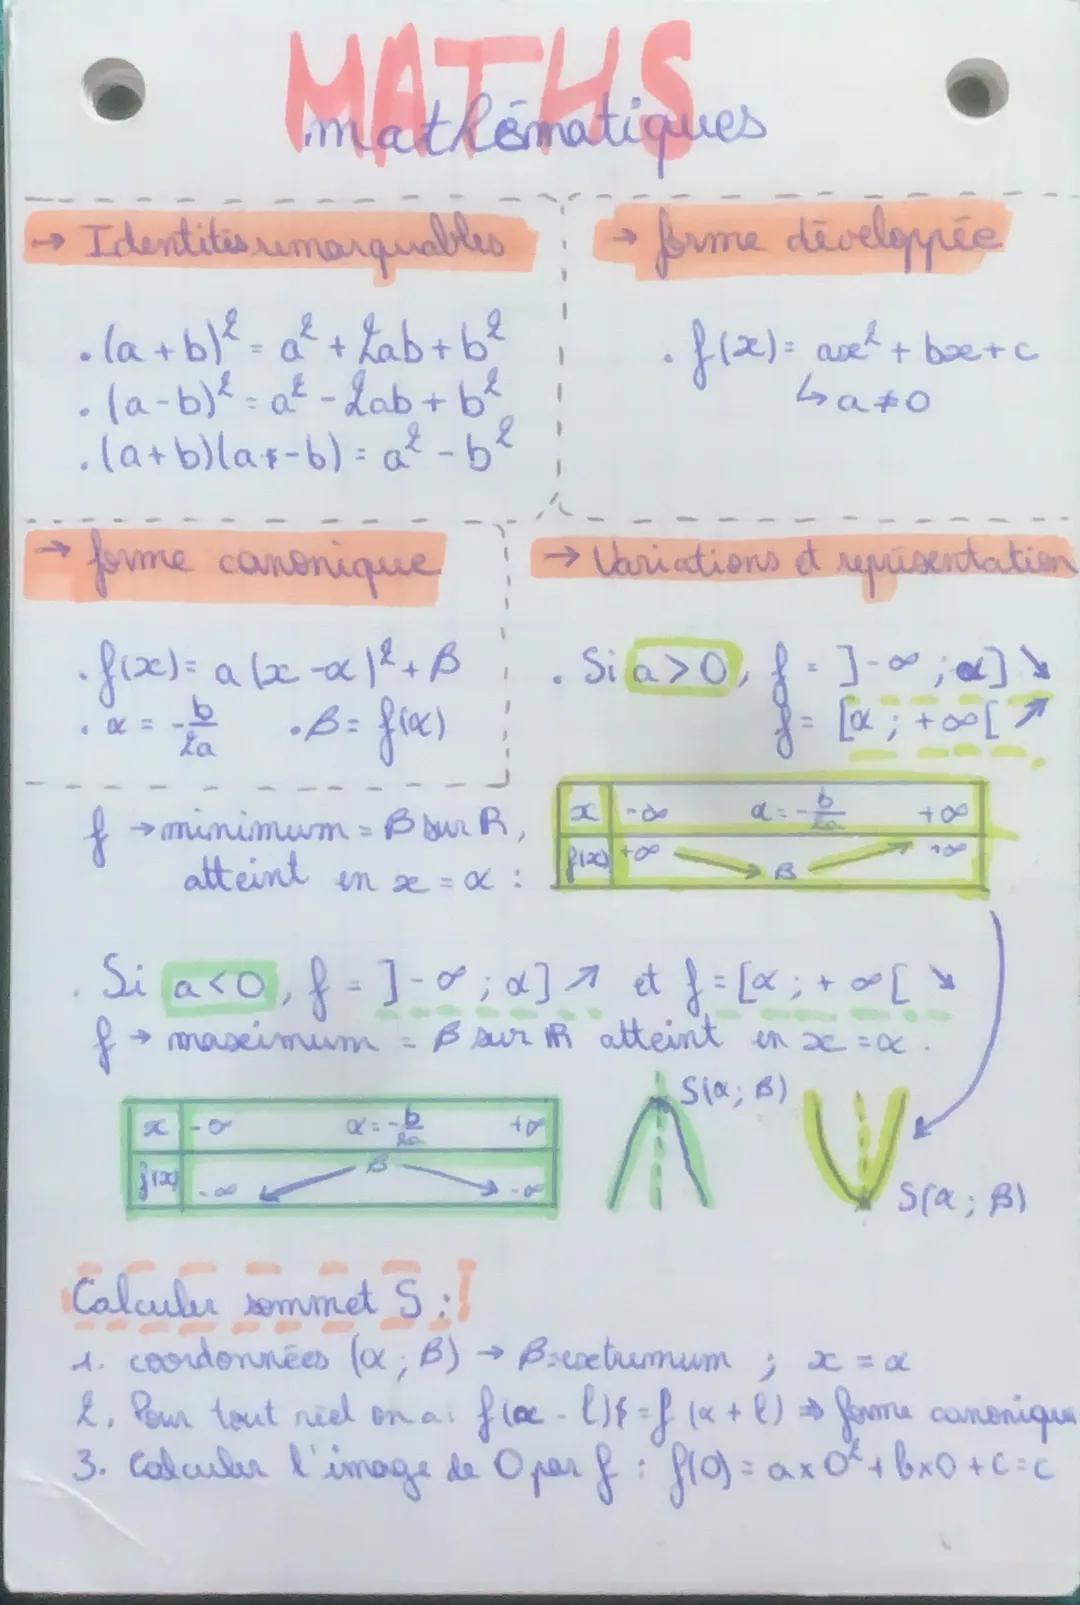 MATHS
mathématiques
→ Identités remarquables
. (a+b)² = a² + 2ab + b²
. (a-b)² = a² - 2ab + b²
. (a+b)(a-b) = a² - b²
→ forme développée
. f(x) = ax² + bx + c
↳ a ≠ 0
→ forme canonique
. f(x) = a(x - α)² + β
. α = -b/2a . β = f(α)
→ Variations et représentation
. Si a > 0, f = ]-∞ ; α] ↘
f = [α ; +∞[ ↗
f → minimum = β sur R,
atteint en x = α :
x -∞ α = -b/2a +∞
f(x) +∞ β +∞
. Si a < 0, f = ]-∞ ; α] ↗ et f = [α ; +∞[ ↘
f → maximum = β sur ℝ atteint en x = α.
x -∞ α = -b/2a +∞
f(x) -∞ β -∞
S(α ; β)
S(α ; β)
Calculer sommet S :
1. coordonnées (α ; β) → β = extremum ; x = α
2. Pour tout réel on a : f(α - l) = f(α + l) ⇒ forme canonique
3. Calculer l'image de 0 par f : f(0) = a×0² + b×0 + c = c